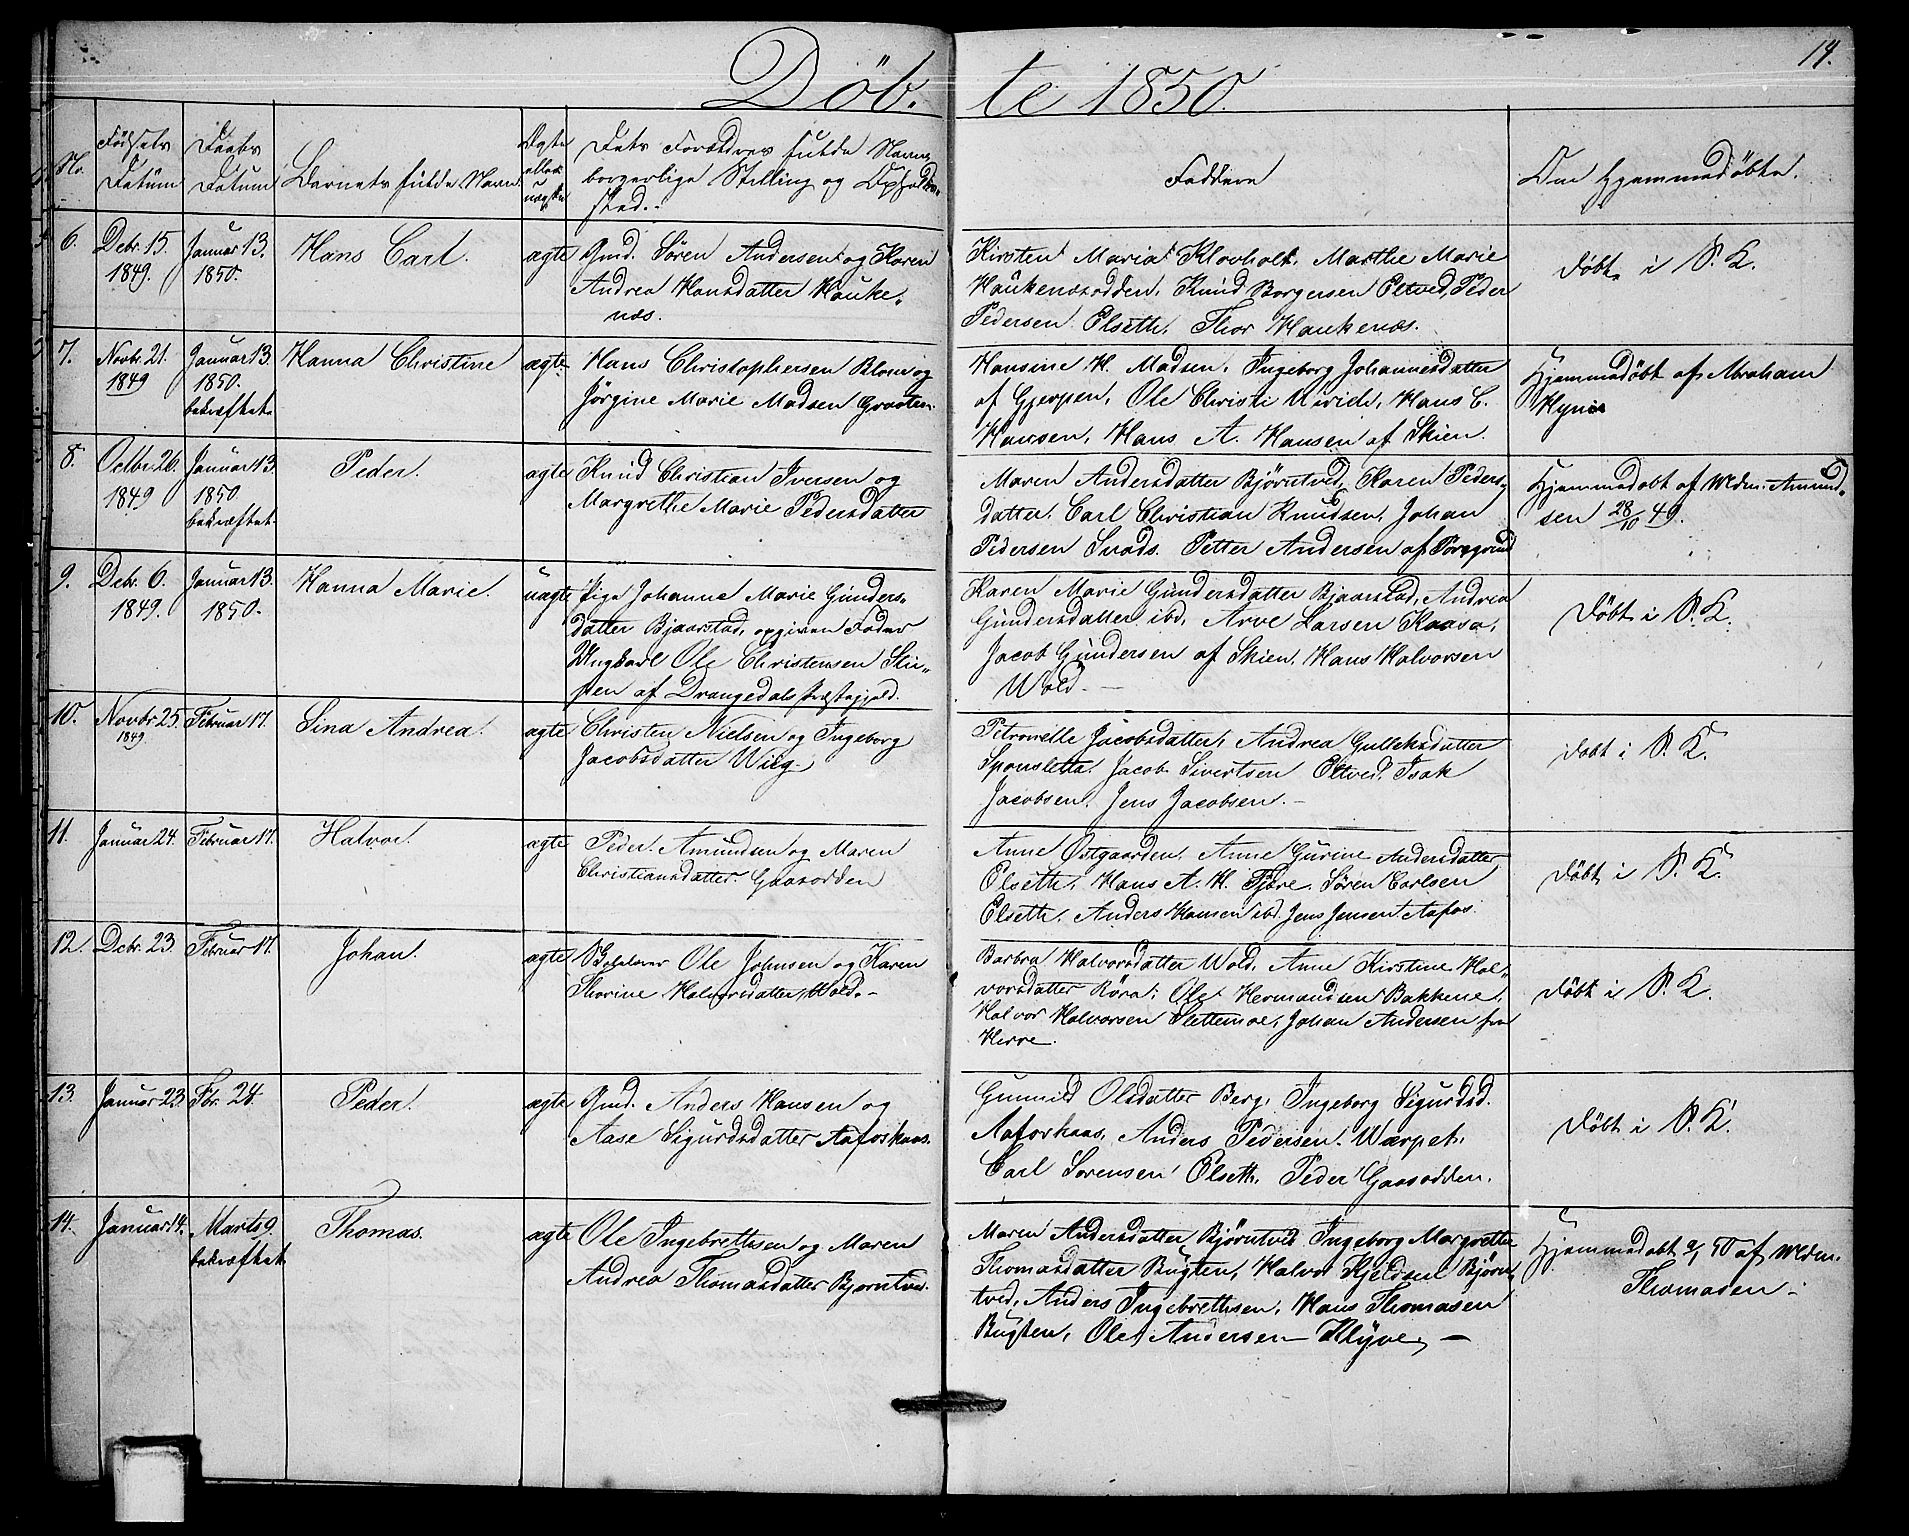 Døb. te 1850.
14.
No.
Fødsels Datum
Daabs Datum
Barnets fulde Navn.
Ægte eller uægte
Dets Forældres fulde Navne, borgerlige Stilling og Opholdssted.
Faddere
Om hjemmedøbt.
6.
Debr. 15. 1849.
Januar 13. 1850.
Hans Carl.
ægte
Gmd. Søren Andersen og Karen
Andrea Hansdatter Hauke,
næs.
Kirsten Maria Klovholt, Marthe Marie
Haukenæsodden, Knud Borgersen Eltved, Peder
Pedersen Elseth, Thor Haukenæs.
døbt i S. K.
7.
Novbr. 21. 1849
Januar 13 1850. bekræftet.
Hanna Christine
ægte
Hans Christophersen Blom og
Jørgine Marie Madsen Graaten
Hansine H. Madsen, Ingeborg Johannesdatter
af Gjerpen, Ole Christi , Hans C.
Hansen, Hans A. Hansen af Skien.
Hjemmedøbt af Abraham
8.
Octbr. 26. 1849
Januar 13. 1850. bekræftet.
Peder.
ægte
Knud Christian Iversen og
Margrethe Marie Pedersdatter
Maren Andersdatter Bjørntved, Karen Peders,
datter, Carl Christian Knudsen, Johan
Pedersen Smeds. Petter Andersen af Porsgrund
Hjemmedøbt af Mdm. Amund,
sen 28/10 49.
9.
Debr. 6. 1849.
Januar 13. 1850.
Hanna Marie.
uægte
Pige Johanne Marie Gunders,
datter Bjaarstad, opgiven Fader
Ungkarl Ole Christensen Sten
af Drangedals Præstegjeld.
Karen Marie Gundersdatter Bjaarstad, Andrea
Gundersdatter ibd, Arve Larsen Kaasa,
Jacob Gundersen af Skien, Hans Halvorsen
Wold. —
Døbt i S. K.
10.
Novbr. 25. 1849.
Februar 17.
Lina Andrea.
ægte
Christen Nielsen og Ingeborg
Jacobsdatter Wiig
Petronelle Jacobsdatter, Andrea Gulleksdatter
Sponsletta, Jacob Sivertsen Eltved, Isak
Jacobsen, Jens Jacobsen. —
døbt i S. K.
11.
Januar 24.
Februar 17.
Halvor.
ægte
Peder Amundsen og Maren
Christiansdatter Gaasodden
Anne Østgaarden, Anne Gurine Andersdatter
Elseth, Hans A. H. Fjære, Søren Carlsen
Elseth, Anders Hansen ibd. Jens Jensen Aafos.
Døbt i S. K.
12.
Debr. 23
Februar 17.
Johan.
ægte
Ole Johnsen og Karen
Thorine Halvorsdatter Wold. —
Barbra Halvorsdatter Wold, Anne Kirstine Hal,
vorsdatter Røra, Ole Hermandsen Bakkene,
Halvor Halvorsen Slettemoe, Johan Andersen fra
Herre.
Døbt i S. K.
13.
Januar 23
Fbr. 24.
Peder.
ægte
Gmd. Anders Hansen og
Aase Sigurdsdatter Aafoskaas.
Gunnild Olsdatter Berg, Ingeborg Sigurdsd.
Aafoskaas, Anders Pedersen Wærpet,
Carl Sørensen Elseth, Peder Gaasodden.
Døbt i S. K.
14.
Januar 14.
Marts 9. bekræftet
Thomas.
ægte
Ole Ingebrethsen og Maren
Andrea Thomasdatter Bjørntved.
Maren Andersdatter Bjørntved Ingeborg Margrethe
Thomasdatter Bugten, Halvor Kjeldsen Bjørn
tved, Anders Ingebrethsen, Hans Thomasen
Bugten, Ole Andersen Klyve, —
Hjemmedøbt 2/1 50 af Mdm.
Thomasen —